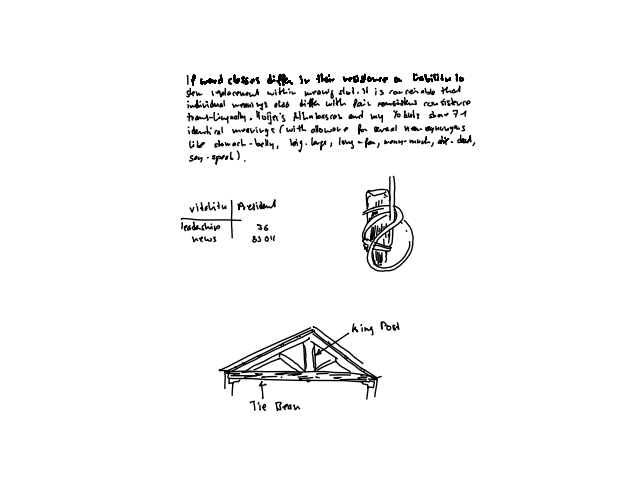 If word classes differ in their resistance or liability to
stem replacement within meaning slot, it is conceivable that
individual meanings also differ with fair consistence
trans-lingually. Hoijer's Athabascan and my Yokuts share 71
identical meanings (with allowance for several near-synonyms
like stomach-belly, big-large, long-far, many-much, die-dead,
say-speak).
vitality President
leadership 36
news 3304
King Post
Tie Beam